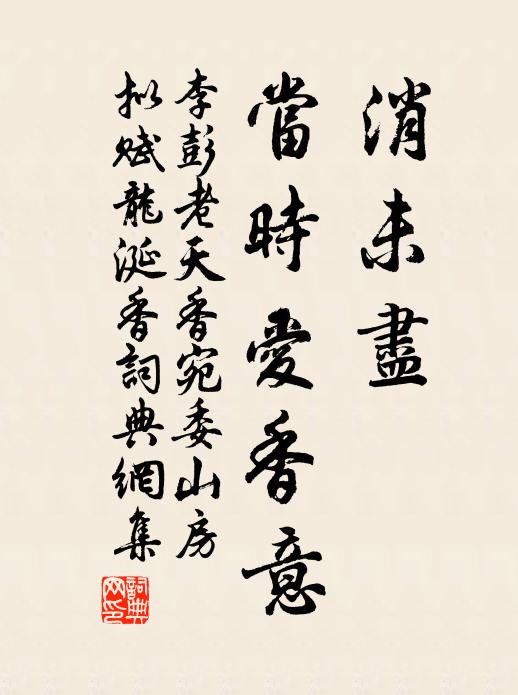 消未盡
當時愛香意
李彭老天香宛委山房
拟赋龍涎香詞典網集
詞典網印